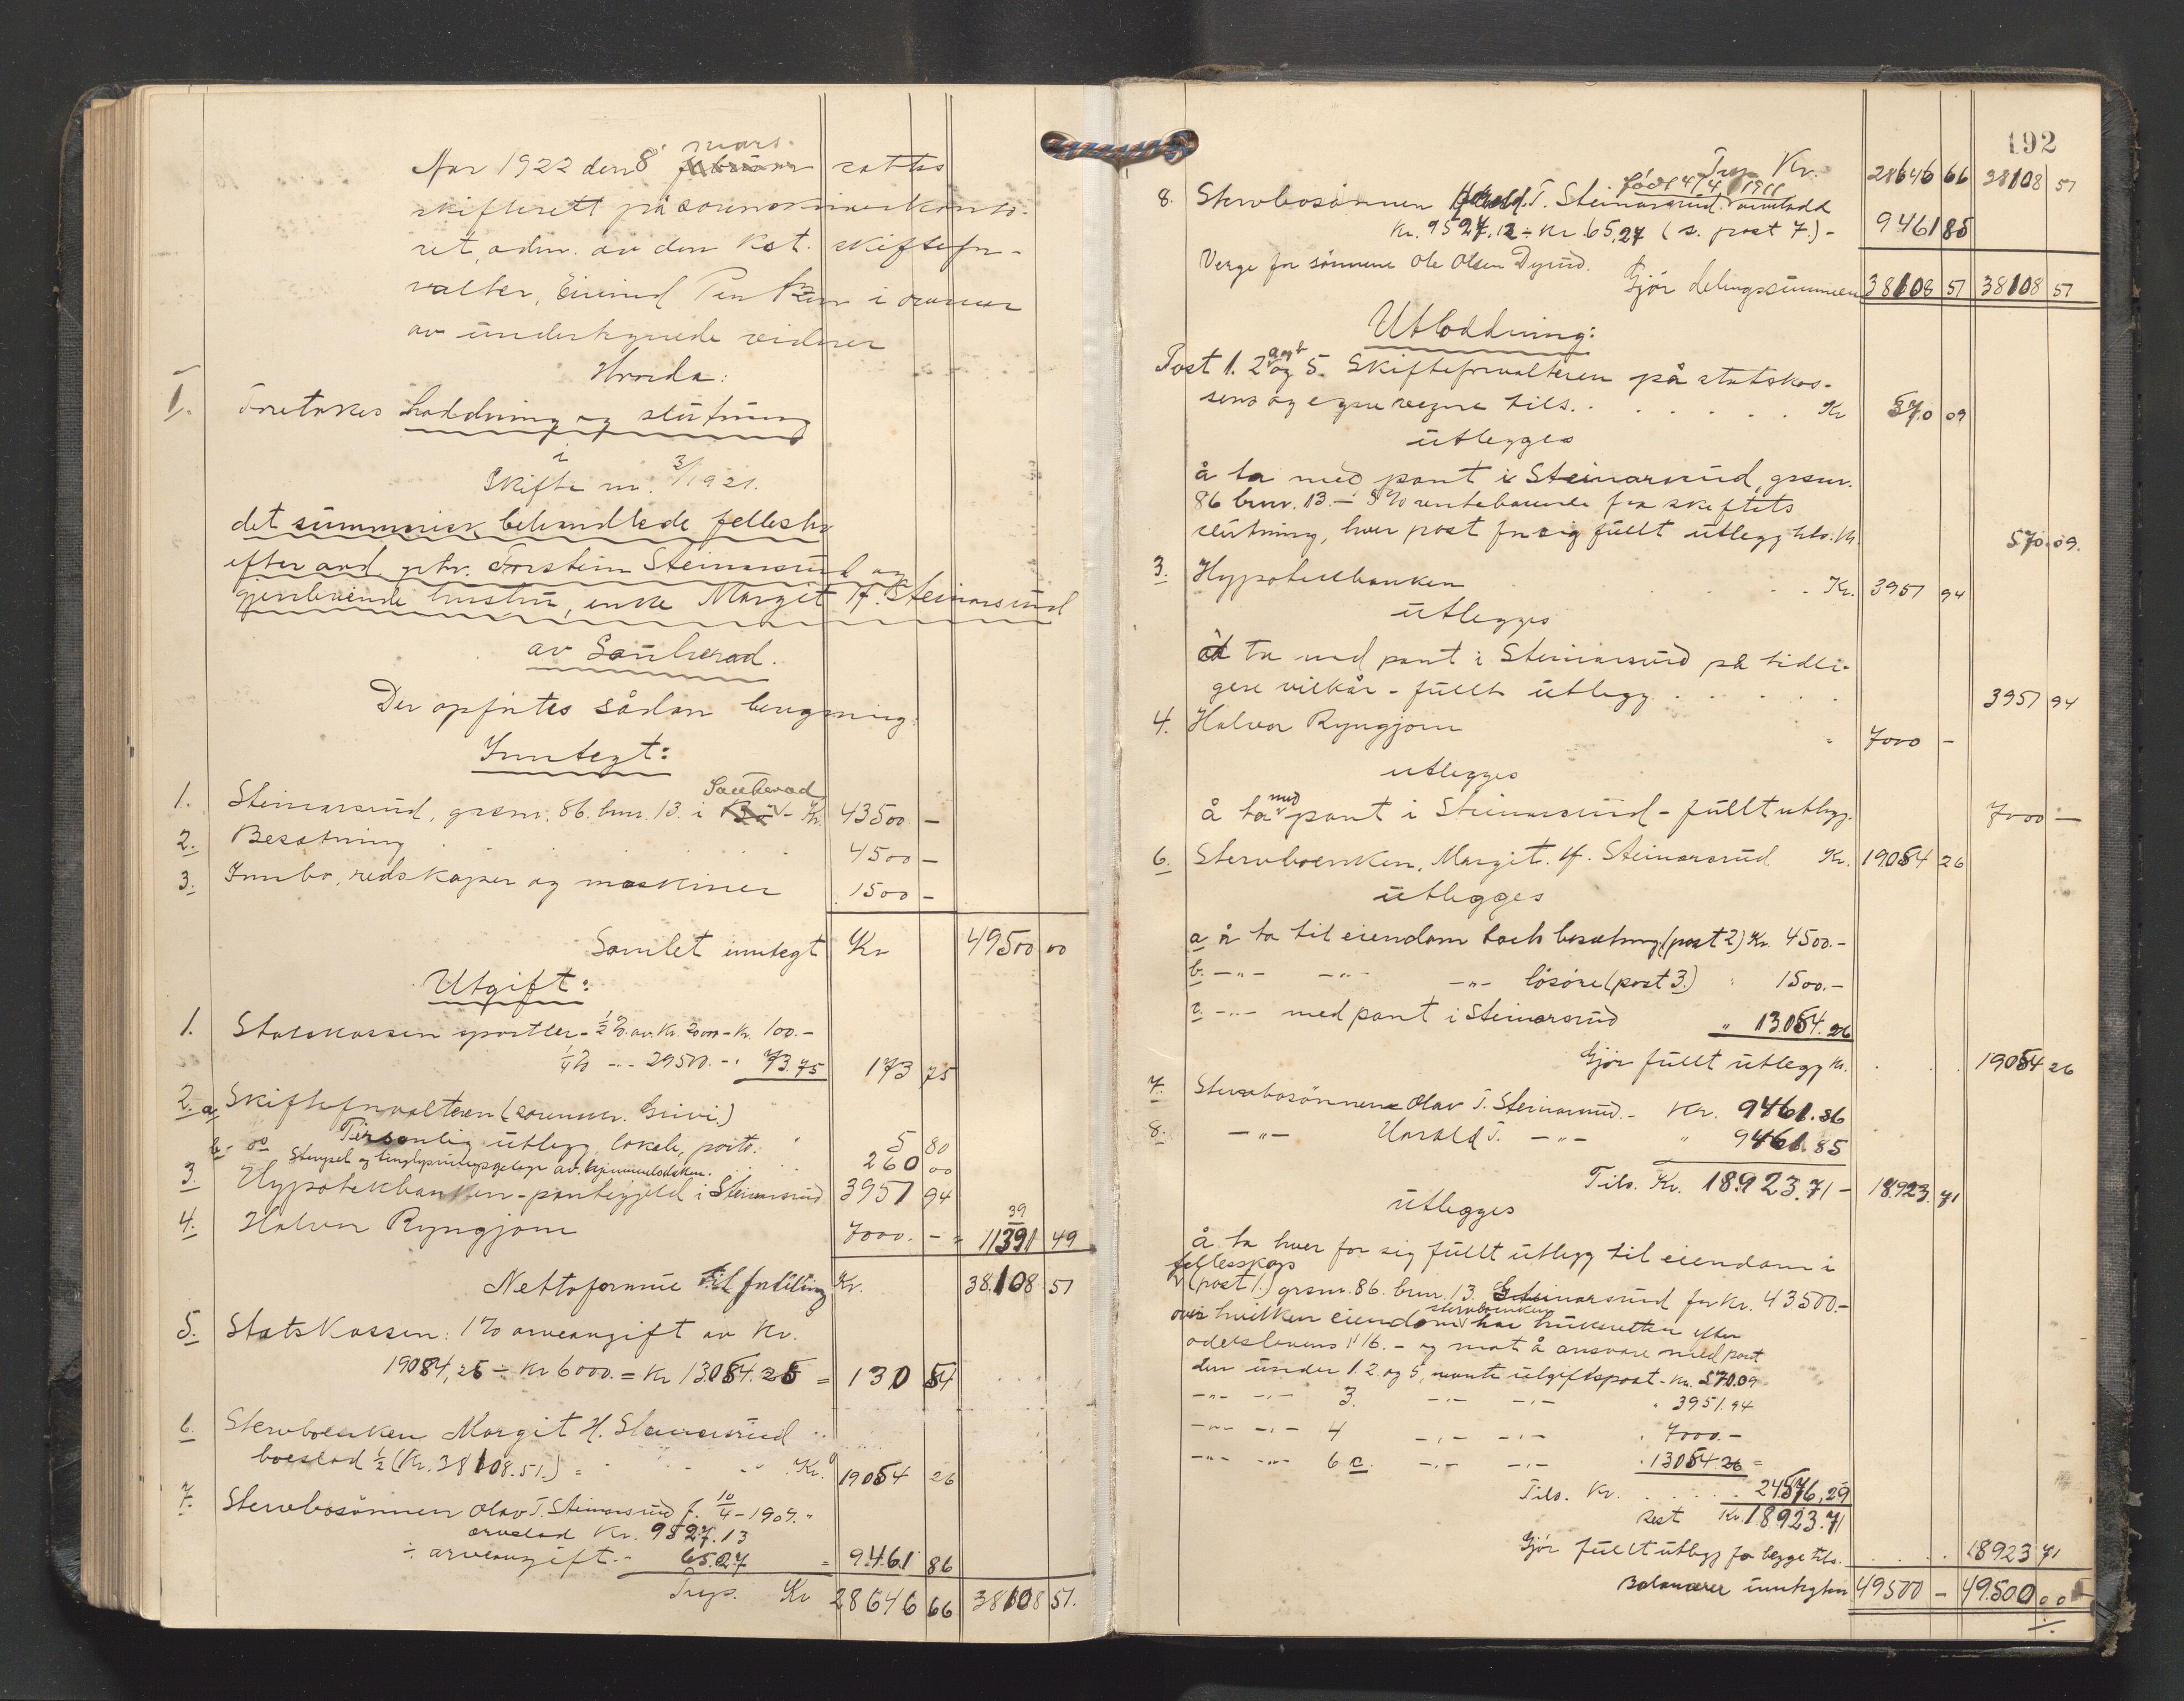 Aar 1922 den 8 mars februar sattes
skifterett på sorenskriverkonto-
ret, adm. av den kst. skiftefor-
valter, Eivind
av undertegnede vidner
Hvorda:
I. Foretokes loddning og slutning
i
Skifte nr. 3/1921.
det summarisk behandlede fellesbo
efter avd. grbr. Torstein Steinarsrud og
gjenlevende hustru, enke Margit H. Steinarsrud
av Sauherad.
Der opførtes sådan beregning:
Inntegt:
1. Steinarsrud, grsnr. 86. brnr. 13. i Bø Sauherad - Kr. 43500 -
2. Besætning 4500 -
3. Innbo, redskaper og maskiner 1500 -
Samlet inntegt Kr 49500 00
Utgift:
1. Statskassen sportler - ½ % av Kr. 20000 - Kr. 100.-
¼ % -"- 29500.- " 73.75 173 75
2. a Skifteforvalteren (sorenskr. )
Personlig utlegg, lokale, porto. 5 80
b. do Stempel og tinglysningsgebyr av hjemmelsdokum. 260 00
3. Hypotekbanken - pantegjeld i Steinarsrud 3951 94
4. Halvor Ryngjom 7000. - = 11391 49
39
Nettoformue til fordeling Kr. 38.108 51
5. Statskassen: 1 % arveavgift av Kr.
19054,26 ÷ Kr 6000. = Kr 13.054.26 = 130 54
6. Stervboenken Margit H. Steinarsrud
boeslod ½ (Kr. 38108.51.) = Kr. 19054 26
7. Stervbosønnen Olav T. Steinarsrud f. 10/4 - 1909.
arvelod Kr. 9527.13
÷ arveavgift - 65.27 = 9461 86
Trsp. Kr 28646 66 38108 51.
192
Trsp Kr. 28646 66 38108 51
født 4/4 1911
8. Stervbosønnen Harald T. Steinarsrud. arvelodd
Kr. 9527.12 ÷ Kr. 65,27 (s. post 7.) - 9461 85
Verge for sønnene Ole Olsen Dyrud.
Gjør delingssummen 38108 51 38108 51
Utloddning:
Post 1. 2 a og b og 5. Skifteforvalteren på statskas-
sens og egne vegne tils. . . . . . . Kr 570 09
utlegges
å ta med pant i Steinarsrud, grsnr.
86 brnr. 13. - 5 % rentebærende fra skiftets
slutning, hver post for sig fullt utlegg tils. Kr. 570.09.
3. Hypotekbanken Kr. 3951 94
utlegges
å ta med pant i Steinarsrud på tidli-
gere vilkår - fullt utlegg . . . . . 3951 94
4. Halvor Ryngjom " 7000 -
utlegges
å ta med pant i Steinarsrud - fullt utlegg. 7000 -
6. Stervboenken, Margit. H. Steinarsrud Kr. 19.054 26
utlegges
a å ta til eiendom boets besætning (post 2) Kr. 4500.-
b. -"- -"- -"- løsøre (post 3.) " 1500.-
c -"- med pant i Steinarsrud " 13.054.26
Gjør fullt utlegg Kr. . . . 19054 26
7. Stervbosønnene Olav T. Steinarsrud. - Kr. 9461.86
8. -"- Harald T. -"- " 9461.85
Tils. Kr. 18.923.71 - 18.923. 71
utlegges
å ta hver for sig fullt utlegg til eiendom i
fellesskap
(post 1.) grsnr. 86. brnr. 13. Steinarsrud for Kr. 43500.-
over hvilken eiendom stervboenken har bruksretten efter
odelslovens § 16. - og mot å ansvare med pant
den under 1. 2. og 5, nevnte utgiftspost - Kr. 570.09
-"- -"- 3. -"- -"- " 3951.94
-"- -"- 4 -"- -"- " 7000.-
-"- -"- 6 c. -"- -"- " 13054 26 =
Tils. Kr. . . . . . 24576,29
Rest Kr. 18923.71
Gjør fullt utlegg for begge tils. . . . 18923 71
Balanserer inntegten 49500 - 49.500 00